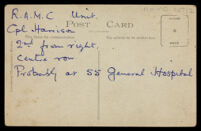 R.A.M.C Unit.
POST CARD
Cpl Harrison
2nd from right,
Centre row
Probably at 55 General Hospital